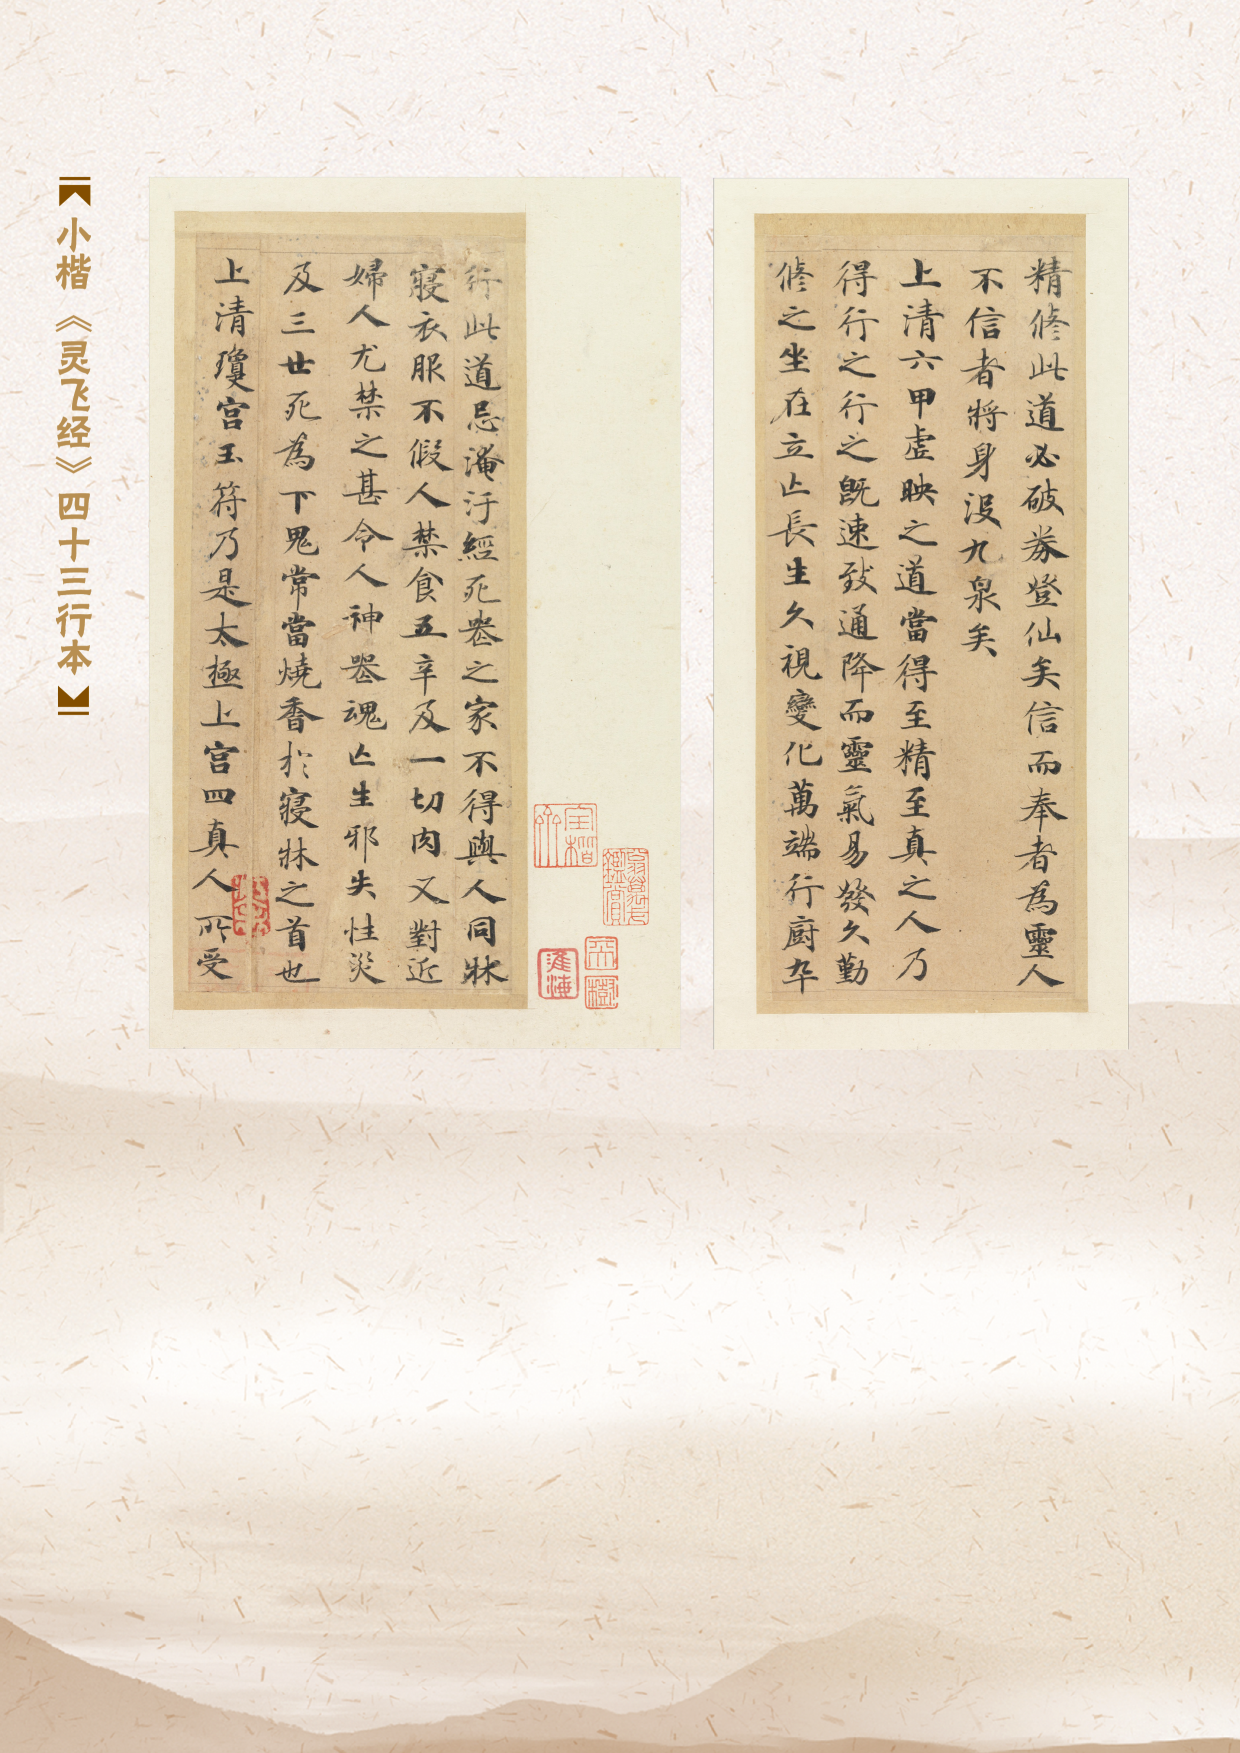 精脩此道必破券登仙矣信而奉者為靈人
不信者將身没九泉矣
上清六甲虛映之道當得至精至真之人乃
得行之行之既速致通降而靈氣易發久勤
脩之坐在立亡長生久視變化萬端行廚卒
行此道忌淹汙經死喪之家不得與人同牀
寢衣服不假人禁食五辛及一切肉又對近
婦人尤禁之甚令人神喪魂亡生邪失性災
及三世死為下鬼常當燒香於寢牀之首也
上清瓊宮玉符乃是太極上宮四真人所受
【小楷《灵飞经》四十三行本】